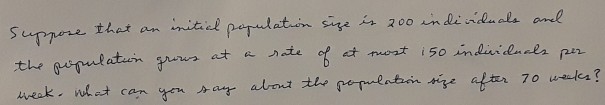 Suppose that an initial population size is 200 individuals and
the population grows at a rate of at most 150 individuals per
week. What can you say about the population size after 70 weeks?